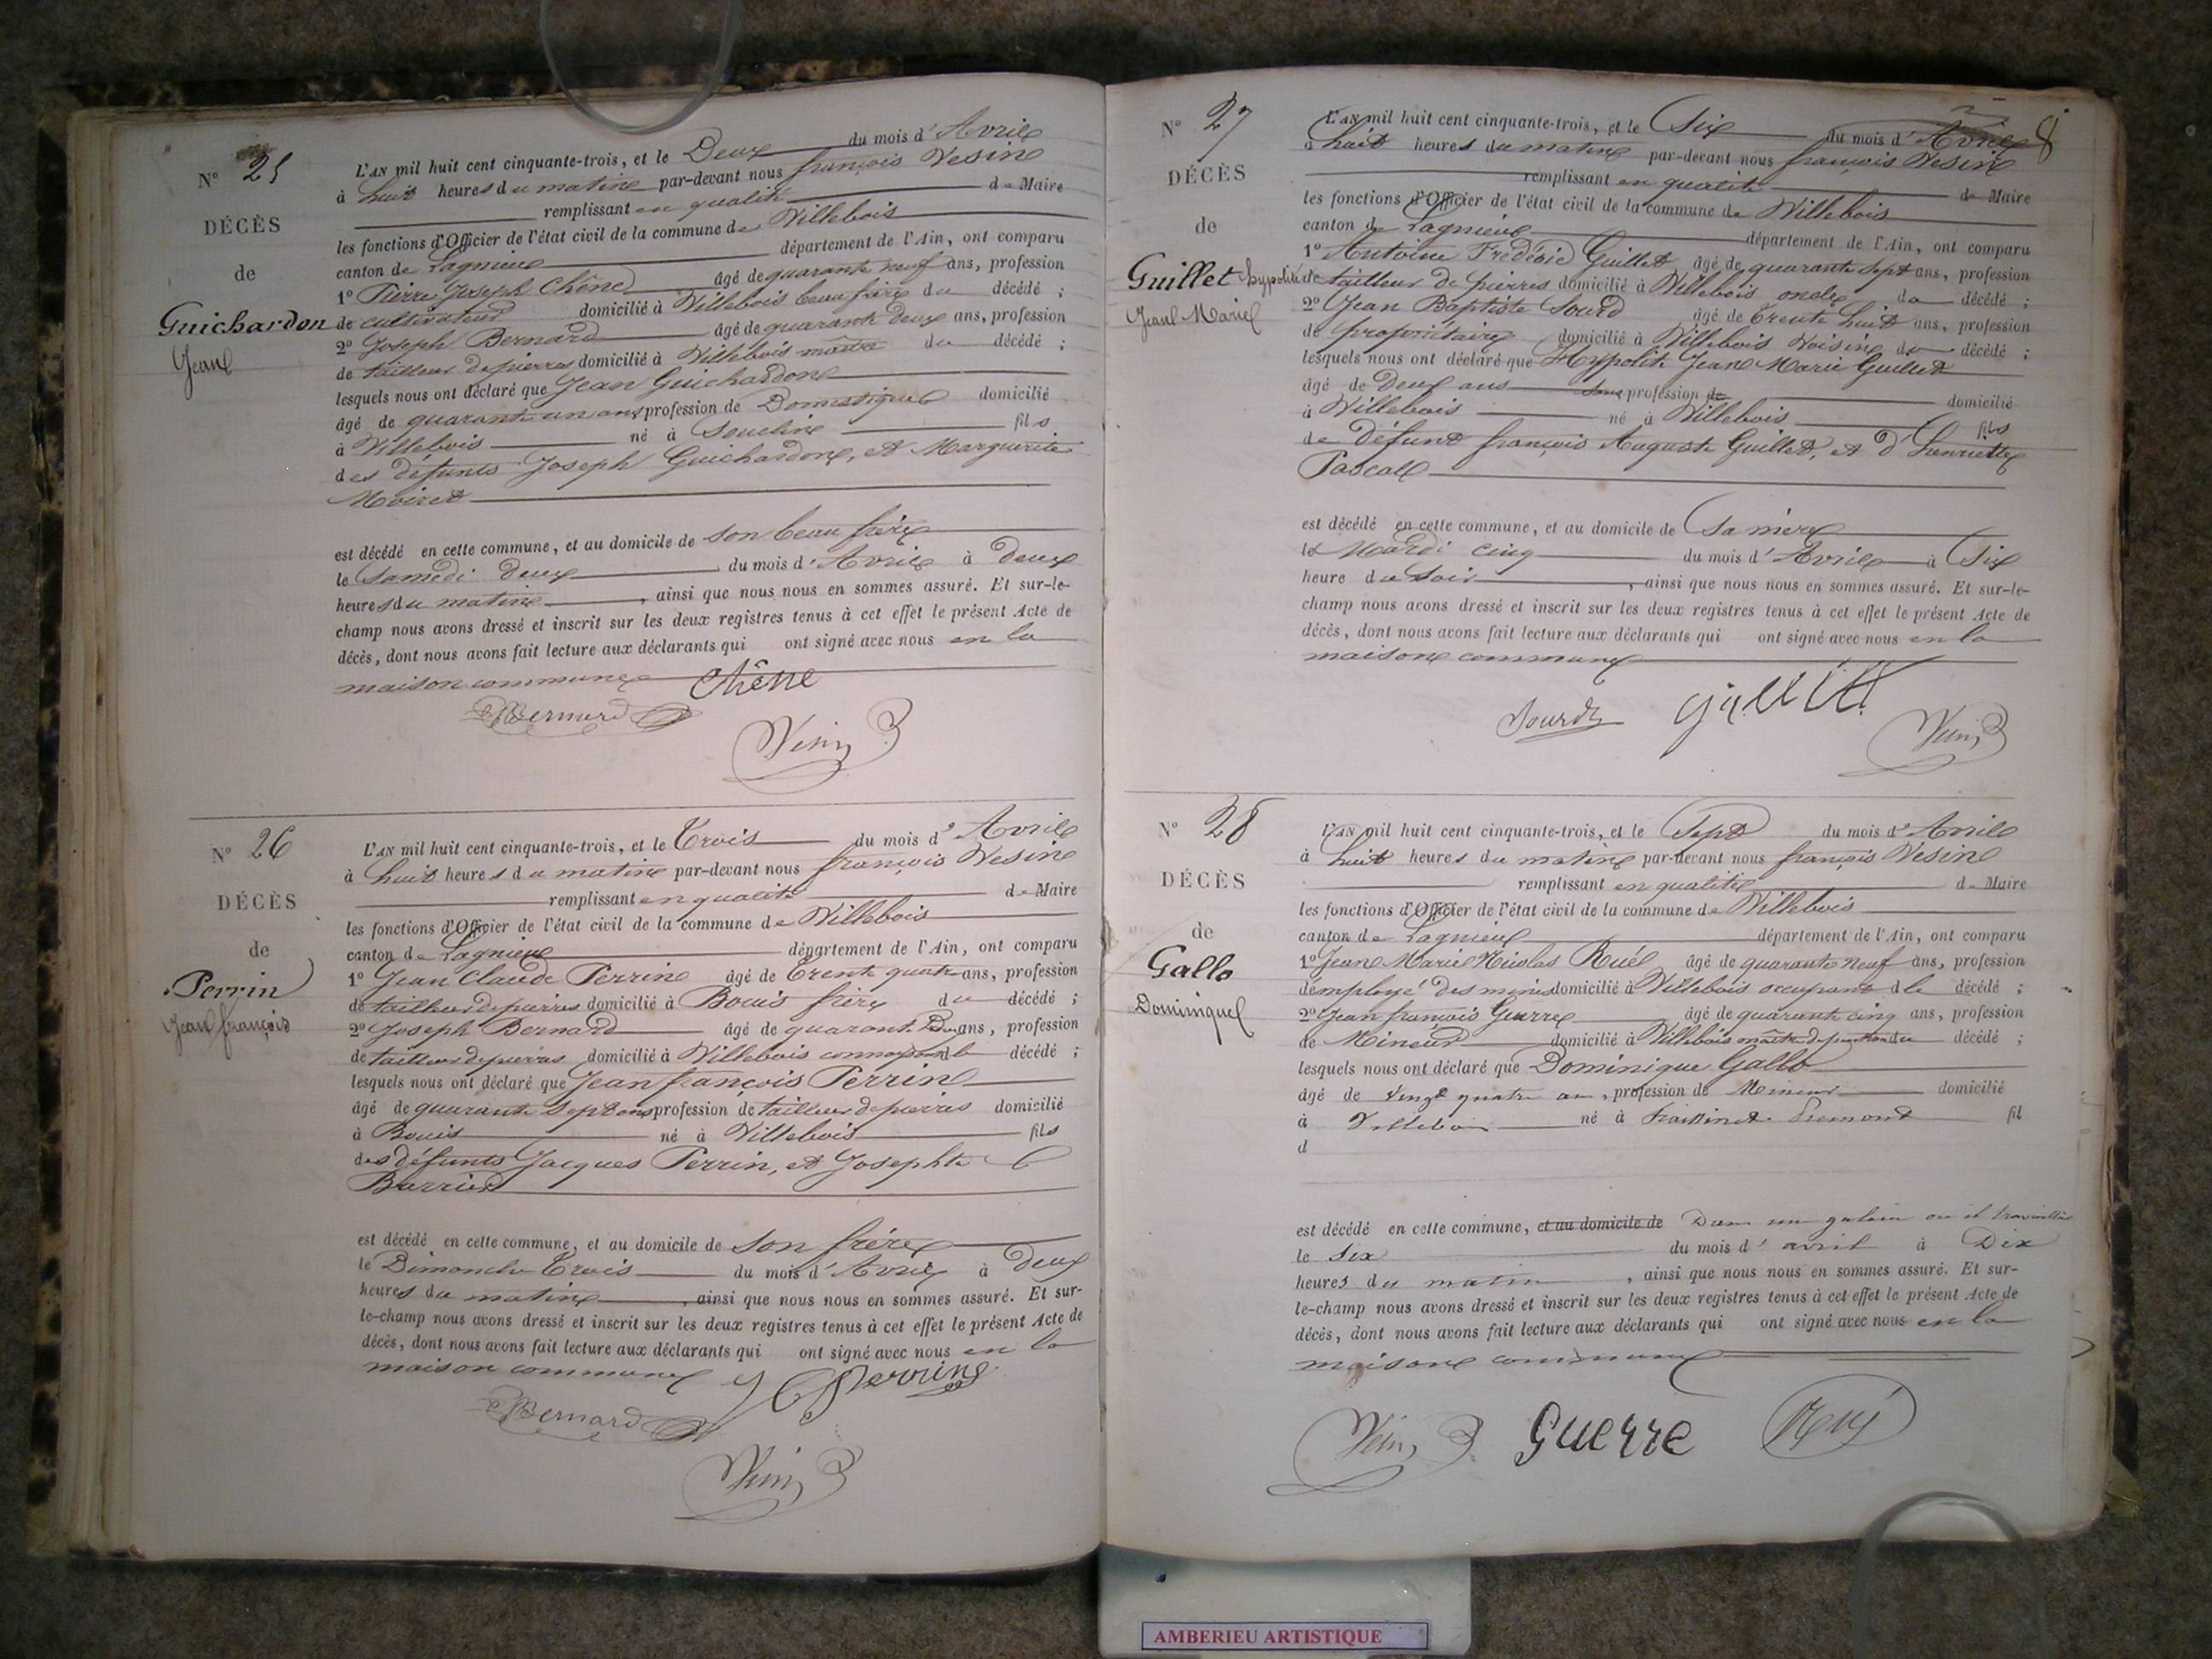 N° 25
DÉCÈS
de
Guichardon
Jean
L'AN mil huit cent cinquante-trois, et le Deux du mois d'Avril
à huit heures du matin par-devant nous françois Vesin
remplissant en qualité de Maire
les fonctions d'Officier de l'état civil de la commune de Villebois
canton de Lagnieu département de l'Ain, ont comparu
1° Pierre Joseph Chêne âgé de quarante neuf ans, profession
de cultivateur domicilié à Villebois beau frère du décédé ;
2° Joseph Bernard âgé de quarante deux ans, profession
de tailleur de pierres domicilié à Villebois maître du décédé ;
lesquels nous ont déclaré que Jean Guichardon
âgé de quarante un ans profession de Domestique domicilié
à Villebois né à Souclin fils
des défunts Joseph Guichardon, et Marguerite
Moiret
est décédé en cette commune, et au domicile de son beau frère
le Samedi deux du mois d'Avril à deux
heures du matin, ainsi que nous nous en sommes assuré. Et sur-le-
champ nous avons dressé et inscrit sur les deux registres tenus à cet effet le présent Acte de
décès, dont nous avons fait lecture aux déclarants qui ont signé avec nous en la
maison commune
Chêne
Bernard
Vesin
N° 26
DÉCÈS
de
Perrin
Jean françois
L'AN mil huit cent cinquante-trois, et le Trois du mois d'Avril
à huit heures du matin par-devant nous françois Vesin
remplissant en qualité de Maire
les fonctions d'Officier de l'état civil de la commune de Villebois
canton de Lagnieu département de l'Ain, ont comparu
1° Jean Claude Perrin âgé de trente quatre ans, profession
de tailleur de pierres domicilié à Bouis frère du décédé ;
2° Joseph Bernard âgé de quarante Deux ans, profession
de tailleur de pierres domicilié à Villebois connaissant le décédé ;
lesquels nous ont déclaré que Jean françois Perrin
âgé de quarante sept ans profession de tailleur de pierres domicilié
à Bouis né à Villebois fils
des défunts Jacques Perrin, et Josephte
Barrier
est décédé en cette commune, et au domicile de son frère
le Dimanche Trois du mois d'Avril à deux
heures du matin, ainsi que nous nous en sommes assuré. Et sur-
le-champ nous avons dressé et inscrit sur les deux registres tenus à cet effet le présent Acte de
décès, dont nous avons fait lecture aux déclarants qui ont signé avec nous en la
maison commune
J C Perrin
Bernard
Vesin
8
N° 27
DÉCÈS
de
Guillet hyppolite
Jean Marie
L'AN mil huit cent cinquante-trois, et le Six du mois d'Avril
à huit heures du matin par-devant nous françois Vesin
remplissant en qualité de Maire
les fonctions d'Officier de l'état civil de la commune de Villebois
canton de Lagnieu département de l'Ain, ont comparu
1° Antoine Frédéric Guillet âgé de quarante Sept ans, profession
de tailleur de pierres domicilié à Villebois oncle du décédé ;
2° Jean Baptiste Sourd âgé de trente huit ans, profession
de propriétaire domicilié à Villebois Voisin du décédé ;
lesquels nous ont déclaré que Hyppolite Jean Marie Guillet
âgé de Deux ans sans profession de domicilié
à Villebois né à Villebois fils
de défunt françois Auguste Guillet, et d'henriette
Pascal
est décédé en cette commune, et au domicile de Sa mère
le Mardi cinq du mois d'Avril à Six
heure du soir, ainsi que nous nous en sommes assuré. Et sur-le-
champ nous avons dressé et inscrit sur les deux registres tenus à cet effet le présent Acte de
décès, dont nous avons fait lecture aux déclarants qui ont signé avec nous en la
maison commune
Sourd Guillet
Vesin
N° 28
DÉCÈS
de
Gallo
Dominique
L'AN mil huit cent cinquante-trois, et le Sept du mois d'Avril
à huit heures du matin par-devant nous françois Vesin
remplissant en qualité de Maire
les fonctions d'Officier de l'état civil de la commune de Villebois
canton de Lagnieu département de l'Ain, ont comparu
1° Jean Marie Nicolas Rué âgé de quarante neuf ans, profession
d'employé des mines domicilié à Villebois occupant le décédé ;
2° Jean françois Guerre âgé de quarante cinq ans, profession
de Mineur domicilié à Villebois maître de pension du décédé ;
lesquels nous ont déclaré que Dominique Gallo
âgé de vingt quatre ans, profession de Mineur domicilié
à Villebois né à fil
d
est décédé en cette commune, et au domicile de Dans une galerie ou il travaillait
le six du mois d'avril à Dix
heures du matin, ainsi que nous nous en sommes assuré. Et sur-
le-champ nous avons dressé et inscrit sur les deux registres tenus à cet effet le présent Acte de
décès, dont nous avons fait lecture aux déclarants qui ont signé avec nous en la
maison commune
Vesin Guerre Rué
AMBERIEU ARTISTIQUE